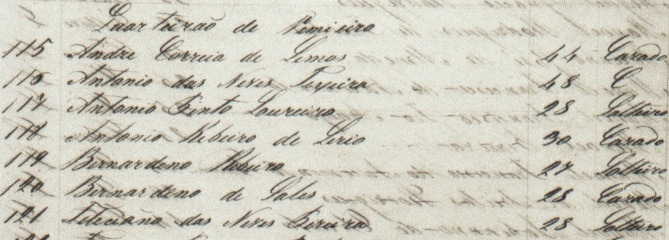 Quarteirão de
115 Andre Correia de Lemos 44 Cazado
116 Antonio das Neves 48 C
117 Antonio Pinto Loureiro 28 Solteiro
118 Antonio Ribeiro de Lirio 30 Cazado
119 Bernardeno Ribeiro 27 Solteiro
120 Bernardeno de Sales 28 Cazado
121 Feleciana das Neves Pereira 28 Solteiro